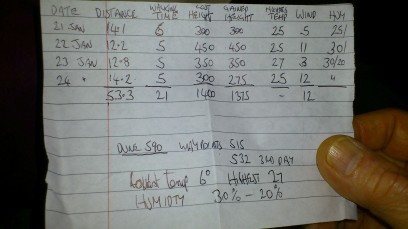 DATE DISTANCE WALKING TIME LOST HEIGHT GAINED HEIGHT HIGHEST TEMP WIND HUM
21 JAN 14.1 6 300 300 25 5 25/
22 JAN 12.2 5 450 450 25 11 30/
23 JAN 12.8 5 350 350 27 3 30/20
24 " 14.2 5 300 275 25 12 "
53.3 21 1400 1375 - 12
DUNE 590 WAYPOINTS 515
532 3RD DAY
Lowest Temp 6° HIGHEST 27
HUMIDITY 30% - 20%